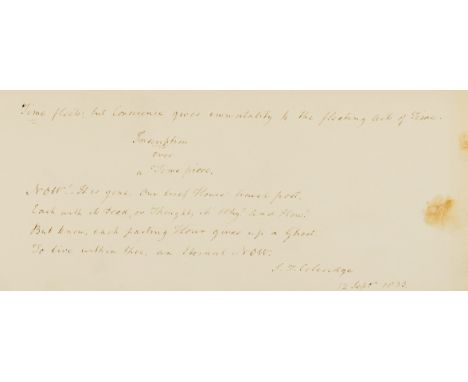 Time fleets; but Conscience gives immortality to the fleeting Act of Time.
Inscription
over
a Time piece.
NOW! It is gone. Our brief Hours travel post,
Each with its Deed, or Thought, its Why? and How?
But know, each parting Hour gives up a Ghost
To live within thee, an Eternal NOW.
S. T. Coleridge
12 Septr 1833